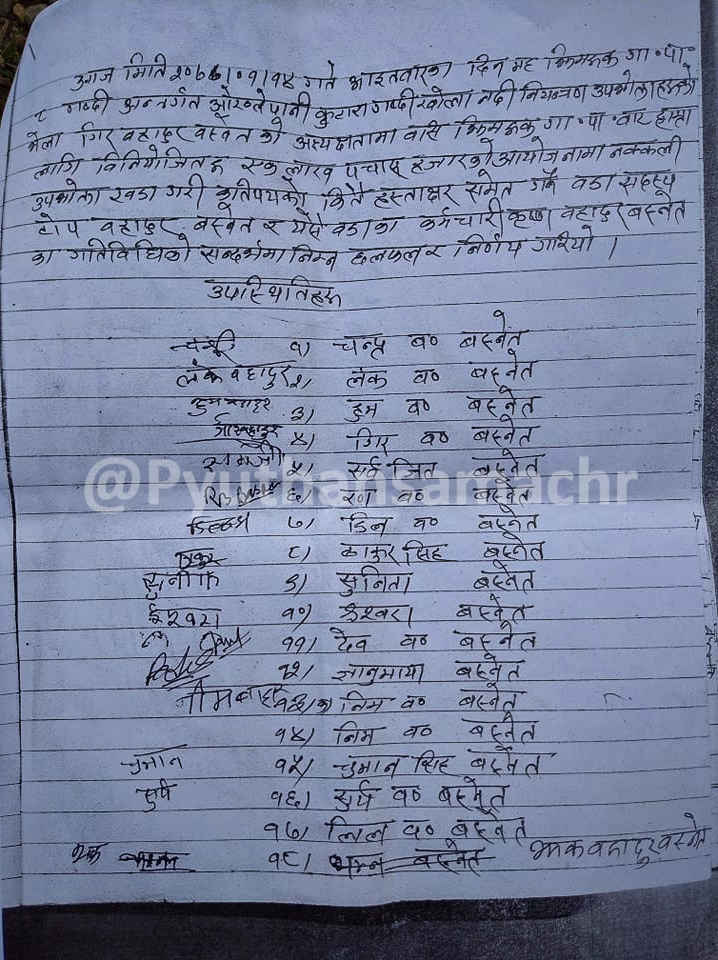 आज मिति २०७७।०१।१४ गते आइतवारका दिन यह झिमरूक गा.पा.
८ गप्दी अन्तर्गत ओख्ले पानी कुटारा गप्दी खोला नदी नियन्त्रण उपभोक्ताहरूको
भेला गिर बहादुर बस्नेत को अध्यक्षतामा वसि झिमरूक गा.पा. वाट हाम्रा
लागि विनियोजित रु एक लाख पचास हजारको आयोजनामा नक्कली
उपभोक्ता खडा गरी कृतिपयको किर्ते हस्ताक्षर समेत गर्ने वडा सदस्य
टोप वहादुर बस्नेत र यसै वडाका कर्मचारी कृष्ण वहादुर बस्नेत
का गतिविधिको सन्दर्भमा निम्न छलफल र निर्णय गरियो ।
उपस्थितिहरू
१) चन्द्र ब० बस्नेत
लंक बहादुर २) लंक ब० बस्नेत
डुम बहादुर ३) डुम ब० बस्नेत
४) गिर ब० बस्नेत
५) सर्व जित बस्नेत
@Pyuthansamachr
६) रण ब० बस्नेत
७) डिन ब० बस्नेत
८) ठाकुर सिंह बस्नेत
सुनीता ९) सुनिता बस्नेत
ईश्वरा १०) ईश्वरा बस्नेत
११) देव ब० बस्नेत
१२) सानुमाया बस्नेत
नीम बहादुर १३) निम ब० बस्नेत
१४) निम ब० बस्नेत
चुमान १५) चुमान सिंह बस्नेत
सुर्य १६) सुर्य ब० बस्नेत
१७) लिल ब० बस्नेत
झक १८) बस्नेत झक बहादुर बस्नेत